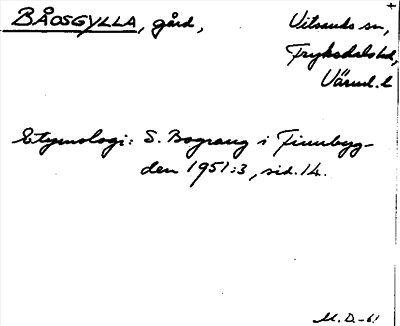 BÅOSGYLLA, gård, Vitsands sn,
Fryksdals hd,
Värml. l
Etymologi: S. Bograng i Finnbyg-
den 1951:3, sid. 14.
M. D. -61